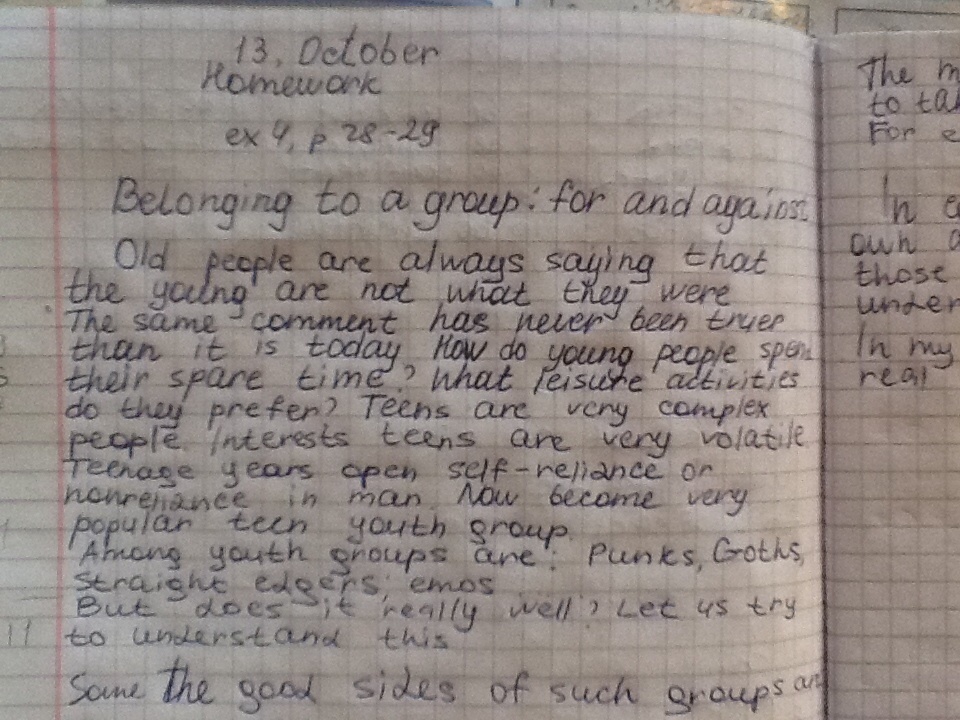 13, October
Homework
ex 4, p 28-29
Belonging to a group: for and against
Old people are always saying that
the young are not what they were
The same comment has never been truer
than it is today. How do young people spend
their spare time? What leisure activities
do they prefer? Teens are very complex
people. Interests teens are very volatile
Teenage years open self-reliance or
nonreliance in man. Now become very
popular teen youth group.
Among youth groups are: Punks, Goths,
straight edgers, emos
But does it really well? Let us try
to understand this
Some the good sides of such groups
The
to
For
In
own
those
under
In my
real